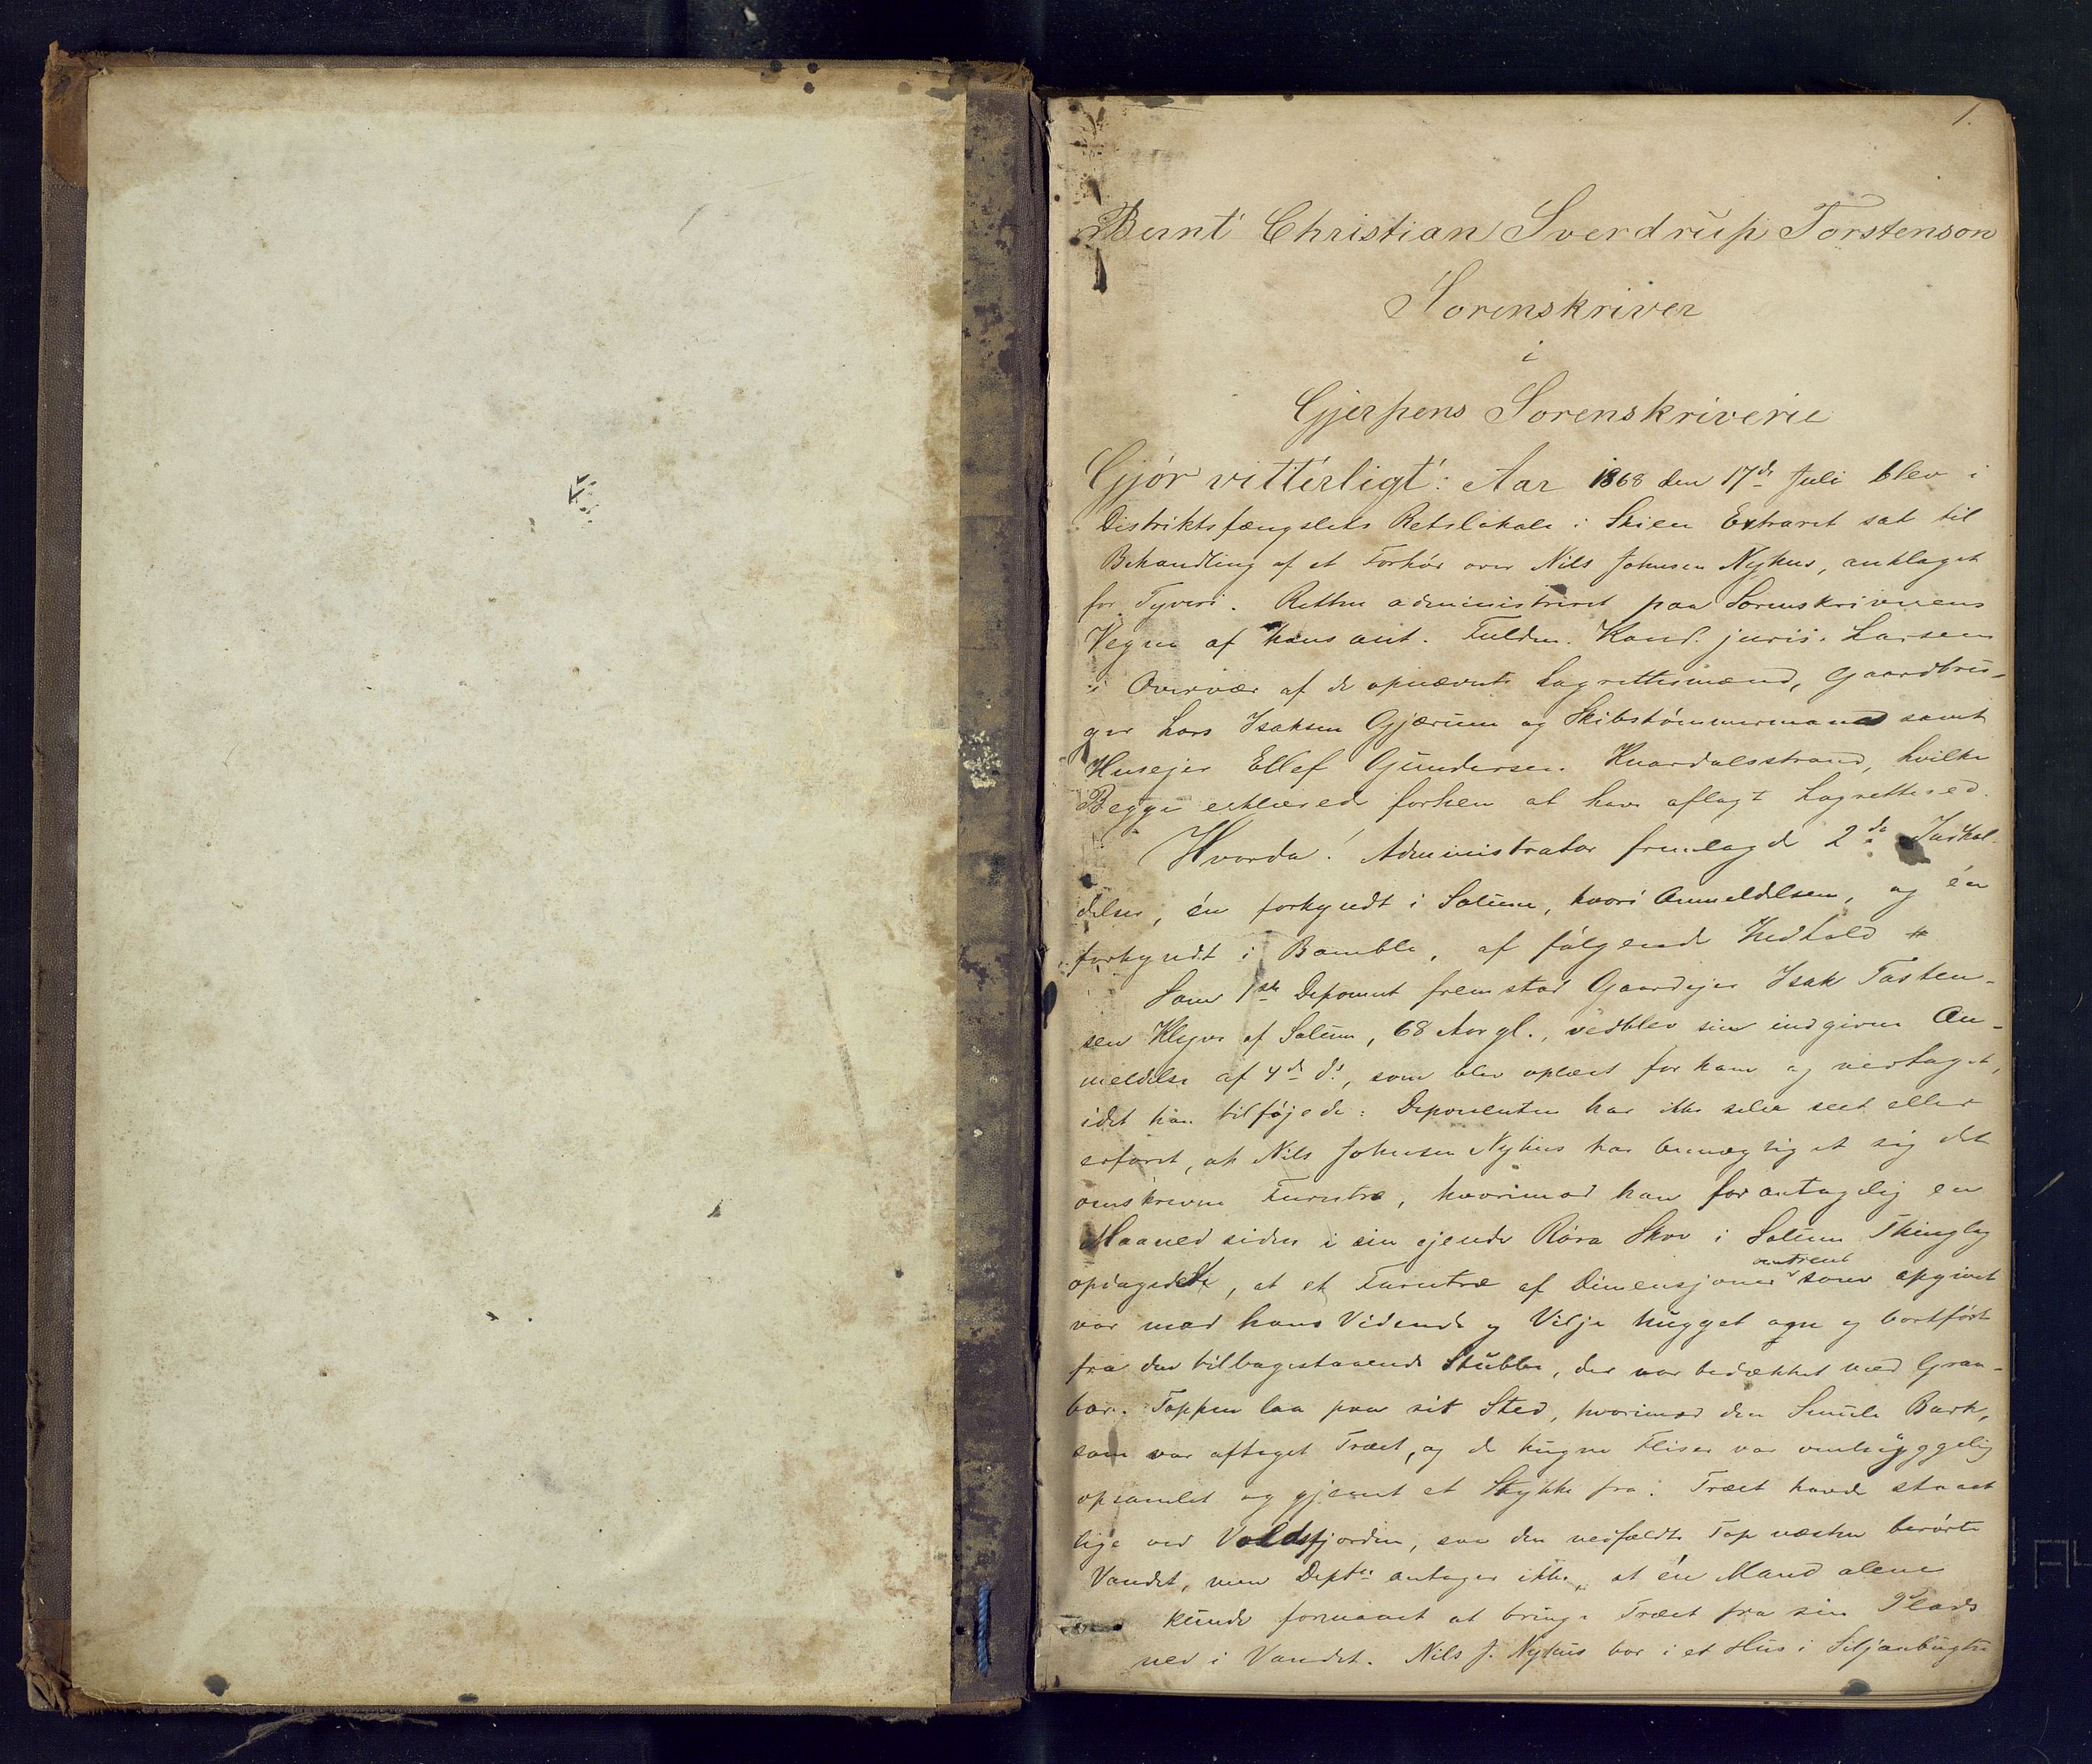 1.
Bernt Christian Sverdrup Torstenson
Sorenskriver
i
Gjerpens Sorenskriverie
Gjör vitterligt: Aar 1868 den 17de Juli blev i
Distriktsfængslets Retslokale i Skien Extraret sat til
Behandling af et Forhör over Nils Johnsen Nyhus, anklaget
for Tyveri. Retten administreret paa Sorenskriverens
Vegne af hans aut. Fuldm. Kand. juris. Larsen
i Overvær af de opnævnte Lagrettesmænd, Gaardbru-
ger Lars Isaksen Gjærum og Skibstömmermand samt
Husejer Ellef Gundersen Knardalsstrand, hvilke
Begge erklærede forhen at have aflagt Lagrettesed.
Hvorda! Administrator fremlagde 2de Indkal-
delser, én forkyndt i Solum, hvori Anmeldelsen, og én
forkyndt i Bamble, af fölgende Indhold #
Som 1ste Deponent fremstod Gaardejer Isak Tosten-
sen Klyve af Solum, 68 Aar gl., vedblev sin indgivne An-
meldelse af 4de ds, som blev oplæst for ham og vedtaget,
idet han tilföjede: Deponenten har ikke selv seet eller
erfaret, at Nils Johnsen Nyhus har bemægtiget sig det
omskrevne Furutræ, hvorimod han for antagelig en
Maaned siden i sin ejende Röra Skov i Solum Thinglag
opdagede, at et Furutræ af Dimensjoner omtrent som opgivet
var mod hans Vidende og Vilje hugget og bortfört
fra den tilbagestaaende Stubbe, der var bedækket med Gran-
bar. Toppen laa paa sit Sted, hvorimod den Smule Bark,
som var aftaget Træet, og de hugne Fliser var omhyggelig
opsamlet og gjemt et Stykke fra. Træet havde staaet
lige ved Voldsfjorden, saa den nedfældte Top næsten berörte
Vandet, men Depten antager ikke, at én Mand alene
kunde formaaet at bringe Træet fra sin Plads
ned i Vandet. Nils J. Nyhus bor i et Hus i